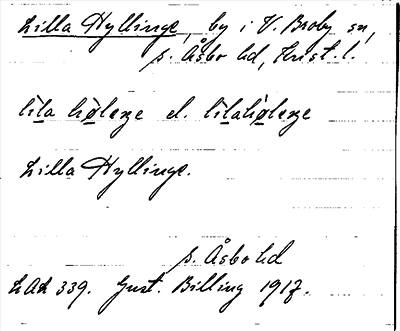 Lilla Hyllinge, by i V. Broby sn,
s. Åsbo hd, Krist. l.
lila høleŋe el. lilahøleŋe
Lilla Hyllinge.
s. Åsbo hd
LAL 339. Gust. Billing 1917.